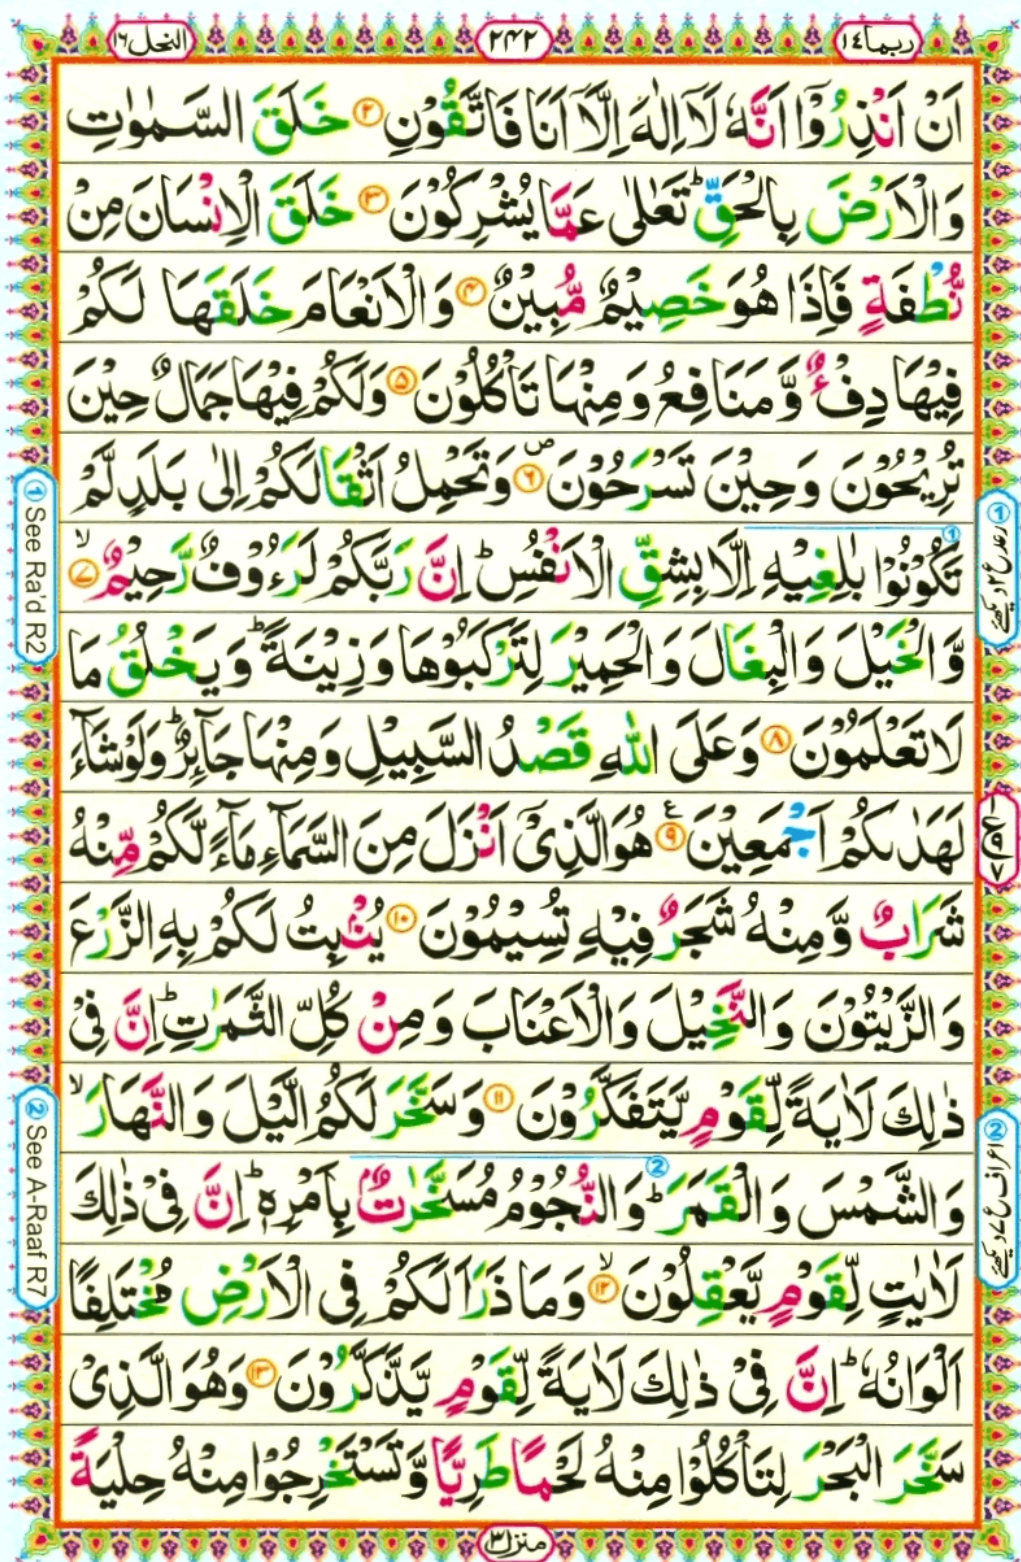 ربما ١٤
٢٤٢
النحل ١٦
اَنْ اَنْذِرُوْۤا اَنَّهٗ لَاۤ اِلٰهَ اِلَّاۤ اَنَا فَاتَّقُوْنِ ۲ خَلَقَ السَّمٰوٰتِ
وَالْاَرْضَ بِالْحَقِّ ؕ تَعٰلٰى عَمَّا يُشْرِكُوْنَ ۳ خَلَقَ الْاِنْسَانَ مِنْ
نُّطْفَةٍ فَاِذَا هُوَ خَصِيْمٌ مُّبِيْنٌ ۴ وَالْاَنْعَامَ خَلَقَهَا لَكُمْ
فِيْهَا دِفْءٌ وَّ مَنَافِعُ وَمِنْهَا تَاْكُلُوْنَ ۵ وَلَكُمْ فِيْهَا جَمَالٌ حِيْنَ
تُرِيْحُوْنَ وَحِيْنَ تَسْرَحُوْنَ ۶ ص وَتَحْمِلُ اَثْقَالَكُمْ اِلٰى بَلَدٍ لَّمْ
تَكُوْنُوْا بٰلِغِيْهِ اِلَّا بِشِقِّ الْاَنْفُسِ ؕ اِنَّ رَبَّكُمْ لَرَءُوْفٌ رَّحِيْمٌ ۷ لا
وَّالْخَيْلَ وَالْبِغَالَ وَالْحَمِيْرَ لِتَرْكَبُوْهَا وَزِيْنَةً ؕ وَيَخْلُقُ مَا
لَا تَعْلَمُوْنَ ۸ وَعَلَى اللّٰهِ قَصْدُ السَّبِيْلِ وَمِنْهَا جَآئِرٌ ؕ وَلَوْ شَآءَ
لَهَدٰىكُمْ اَجْمَعِيْنَ ۹ ع هُوَ الَّذِيْۤ اَنْزَلَ مِنَ السَّمَآءِ مَآءً لَّكُمْ مِّنْهُ
شَرَابٌ وَّمِنْهُ شَجَرٌ فِيْهِ تُسِيْمُوْنَ ۱۰ يُنْۢبِتُ لَكُمْ بِهِ الزَّرْعَ
وَالزَّيْتُوْنَ وَالنَّخِيْلَ وَالْاَعْنَابَ وَمِنْ كُلِّ الثَّمَرٰتِ ؕ اِنَّ فِيْ
ذٰلِكَ لَاٰيَةً لِّقَوْمٍ يَّتَفَكَّرُوْنَ ۱۱ وَسَخَّرَ لَكُمُ الَّيْلَ وَالنَّهَارَ ۙ
وَالشَّمْسَ وَالْقَمَرَ ؕ وَالنُّجُوْمُ مُسَخَّرٰتٌۢ بِاَمْرِهٖ ؕ اِنَّ فِيْ ذٰلِكَ
لَاٰيٰتٍ لِّقَوْمٍ يَّعْقِلُوْنَ ۱۲ ۙ وَمَا ذَرَاَ لَكُمْ فِى الْاَرْضِ مُخْتَلِفًا
اَلْوَانُهٗ ؕ اِنَّ فِيْ ذٰلِكَ لَاٰيَةً لِّقَوْمٍ يَّذَّكَّرُوْنَ ۱۳ وَهُوَ الَّذِيْ
سَخَّرَ الْبَحْرَ لِتَاْكُلُوْا مِنْهُ لَحْمًا طَرِيًّا وَّتَسْتَخْرِجُوْا مِنْهُ حِلْيَةً
منزل ٣
① رعد ع ٢ دیکھئے
② اعراف ع ٧ دیکھئے
① See Ra'd R2
② See A-Raaf R7